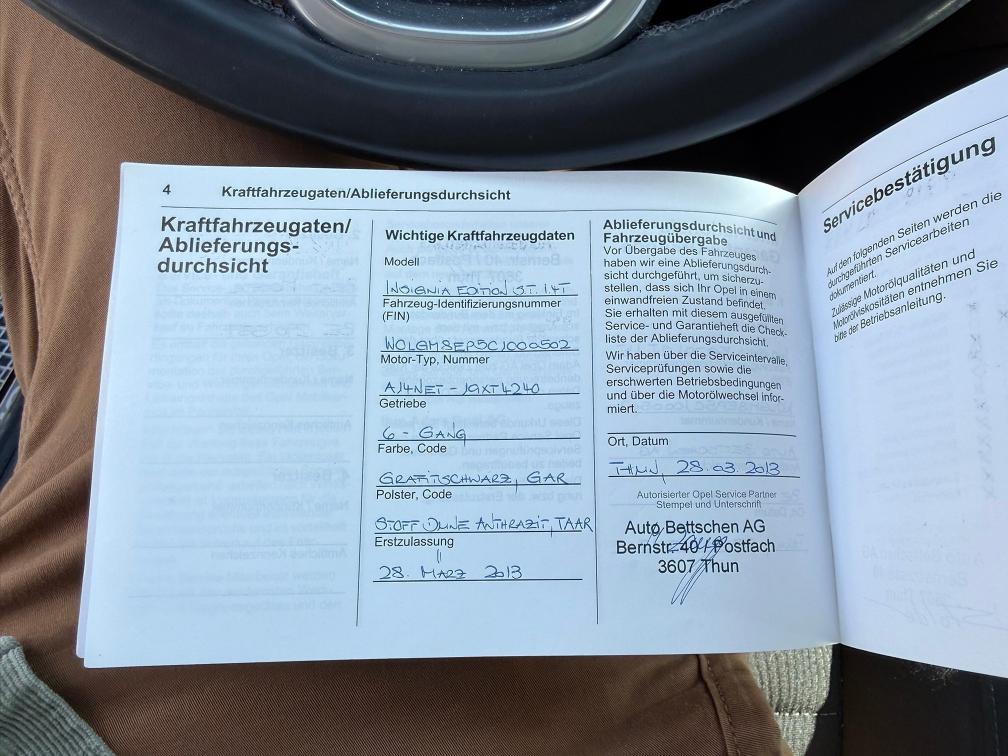 4 Kraftfahrzeugaten/Ablieferungsdurchsicht
Kraftfahrzeugaten/
Ablieferungs-
durchsicht
Wichtige Kraftfahrzeugdaten
Modell
INSIGNIA EDITION ST. 1.4T
Fahrzeug-Identifizierungsnummer
(FIN)
W0LGM8EP5C1000502
Motor-Typ, Nummer
A14NET - 19XT4240
Getriebe
6 - GANG
Farbe, Code
GRAFITSCHWARZ, GAR
Polster, Code
STOFF ANTHRAZIT, TAAR
Erstzulassung
28. MÄRZ 2013
Ablieferungsdurchsicht und
Fahrzeugübergabe
Vor Übergabe des Fahrzeuges
haben wir eine Ablieferungsdurch-
sicht durchgeführt, um sicherzu-
stellen, dass sich Ihr Opel in einem
einwandfreien Zustand befindet.
Sie erhalten mit diesem ausgefüllten
Service- und Garantieheft die Check-
liste der Ablieferungsdurchsicht.
Wir haben über die Serviceintervalle,
Serviceprüfungen sowie die
erschwerten Betriebsbedingungen
und über die Motorölwechsel infor-
miert.
Ort, Datum
THUN, 28.03.2013
Autorisierter Opel Service Partner
Stempel und Unterschrift
Auto Bettschen AG
Bernstr. 40 / Postfach
3607 Thun
Servicebestätigung
Auf den folgenden Seiten werden die
durchgeführten Servicearbeiten
dokumentiert.
Zulässige Motorölqualitäten und
Motorölviskositäten entnehmen Sie
bitte der Betriebsanleitung.